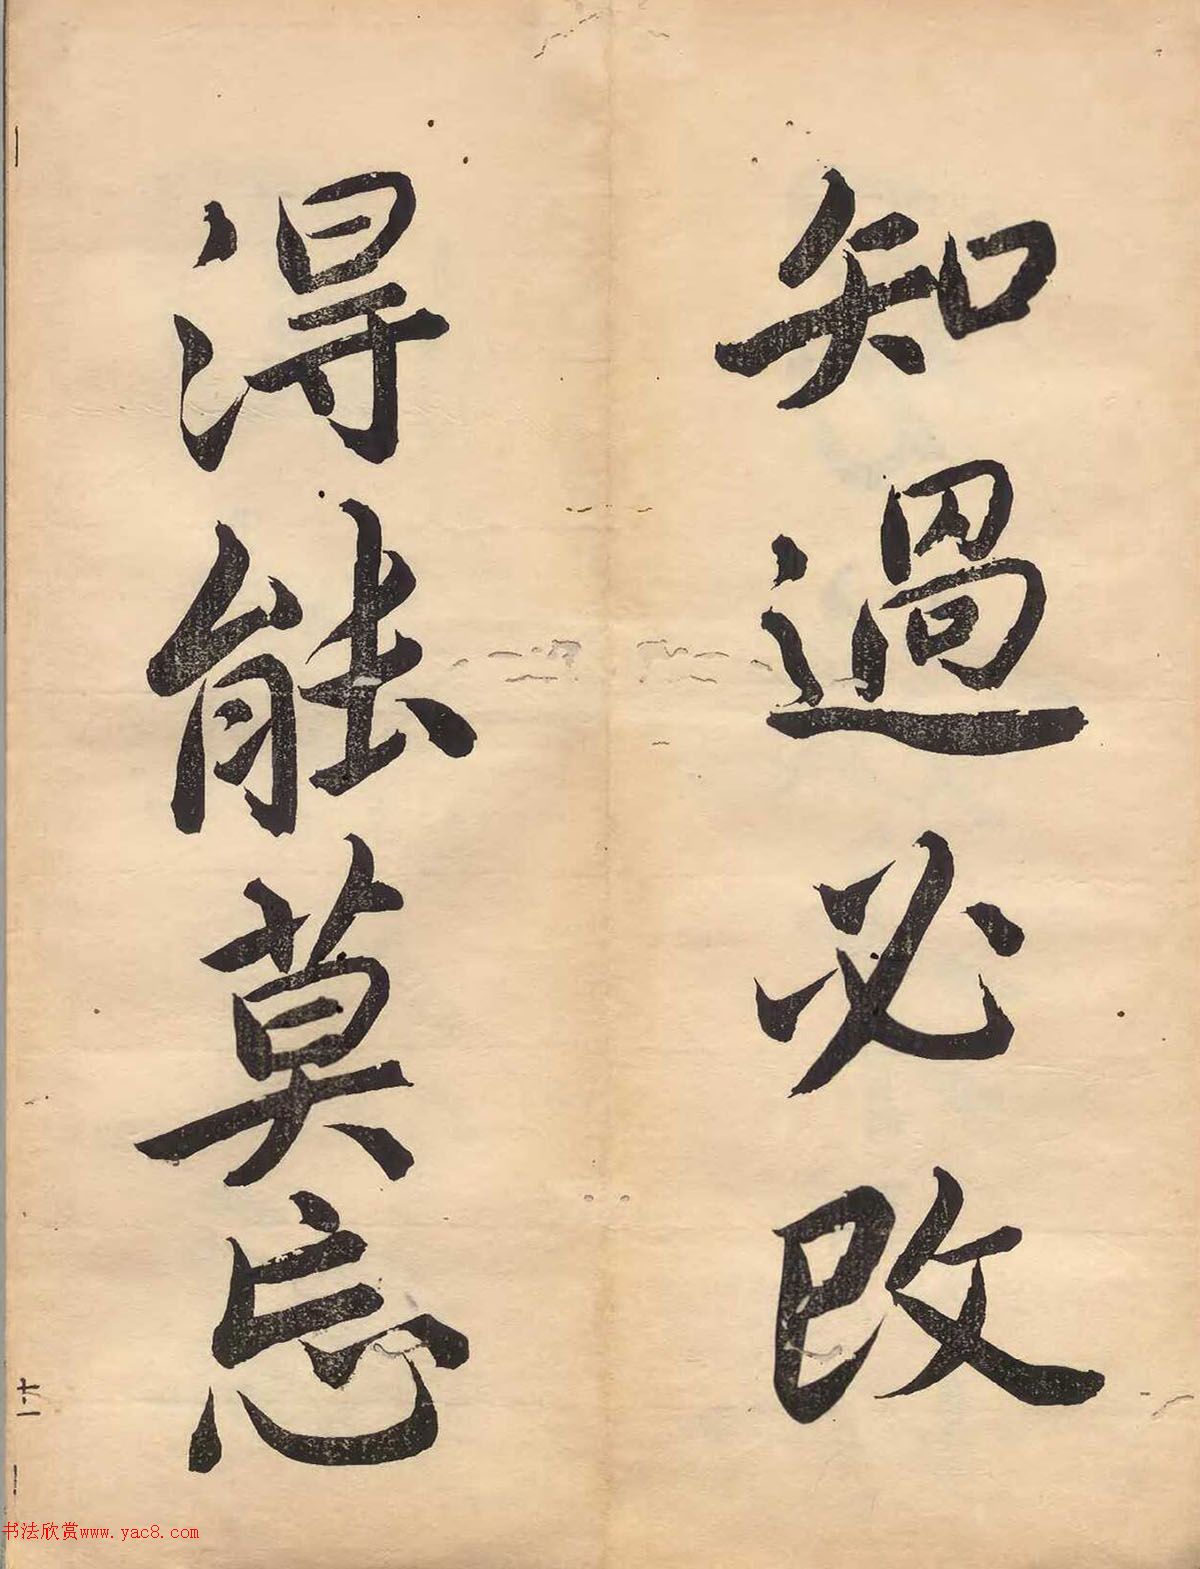 知過必改
得能莫忘
十一
书法欣赏www.yac8.com